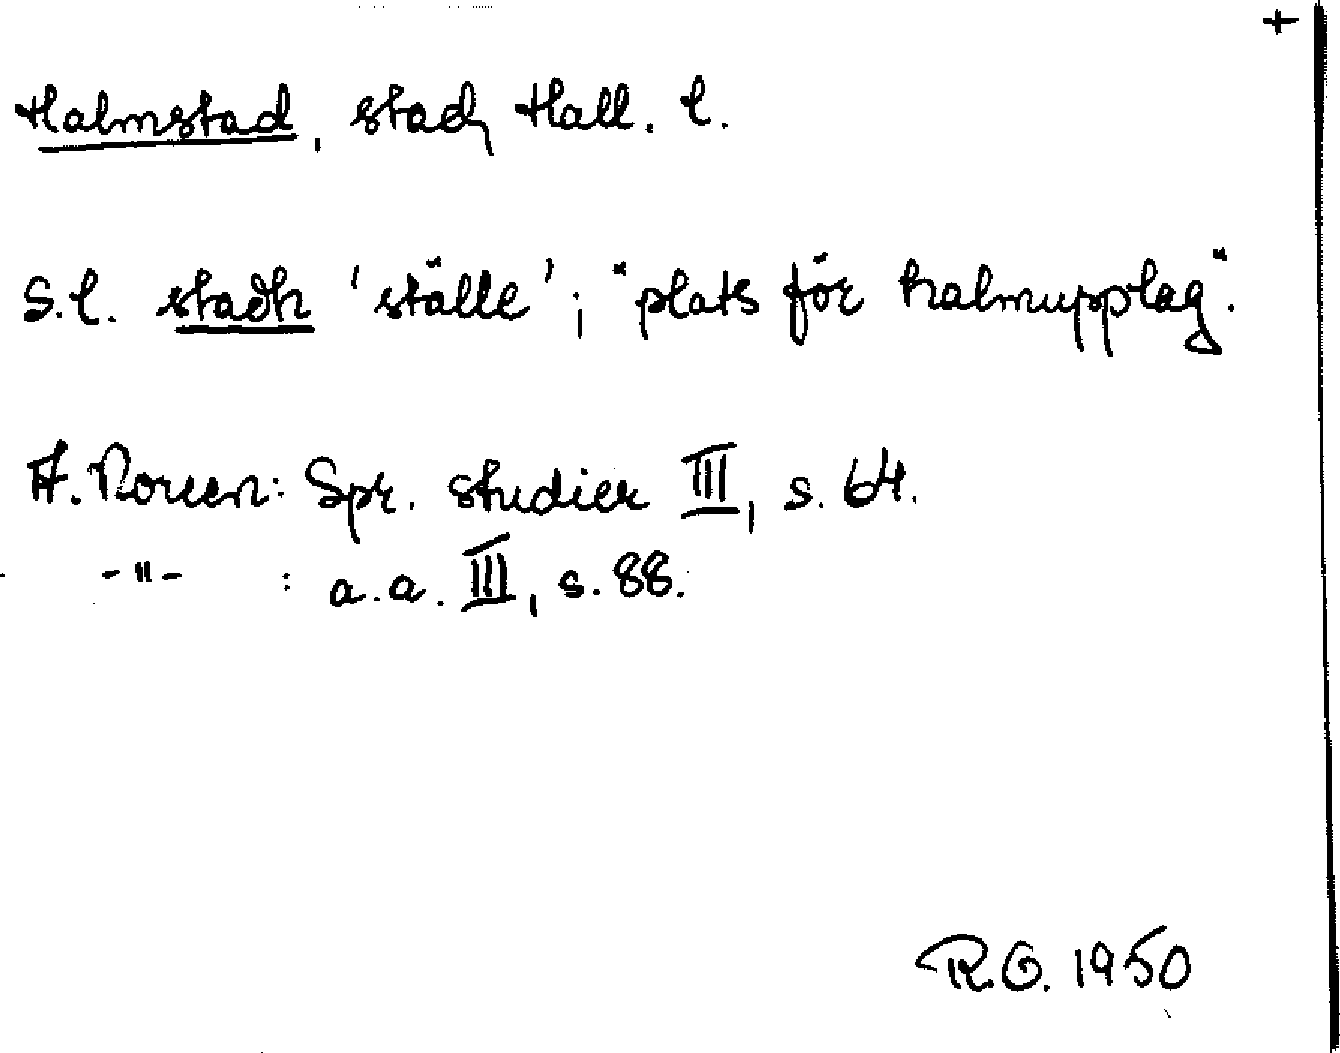 +
Halmstad, stad, Hall. l.
S.l. stadh 'ställe'; "plats för halmupplag".
A. Noreen: Spr. studier III, s. 64.
-"- : a.a. III, s. 88.
R.G. 1950